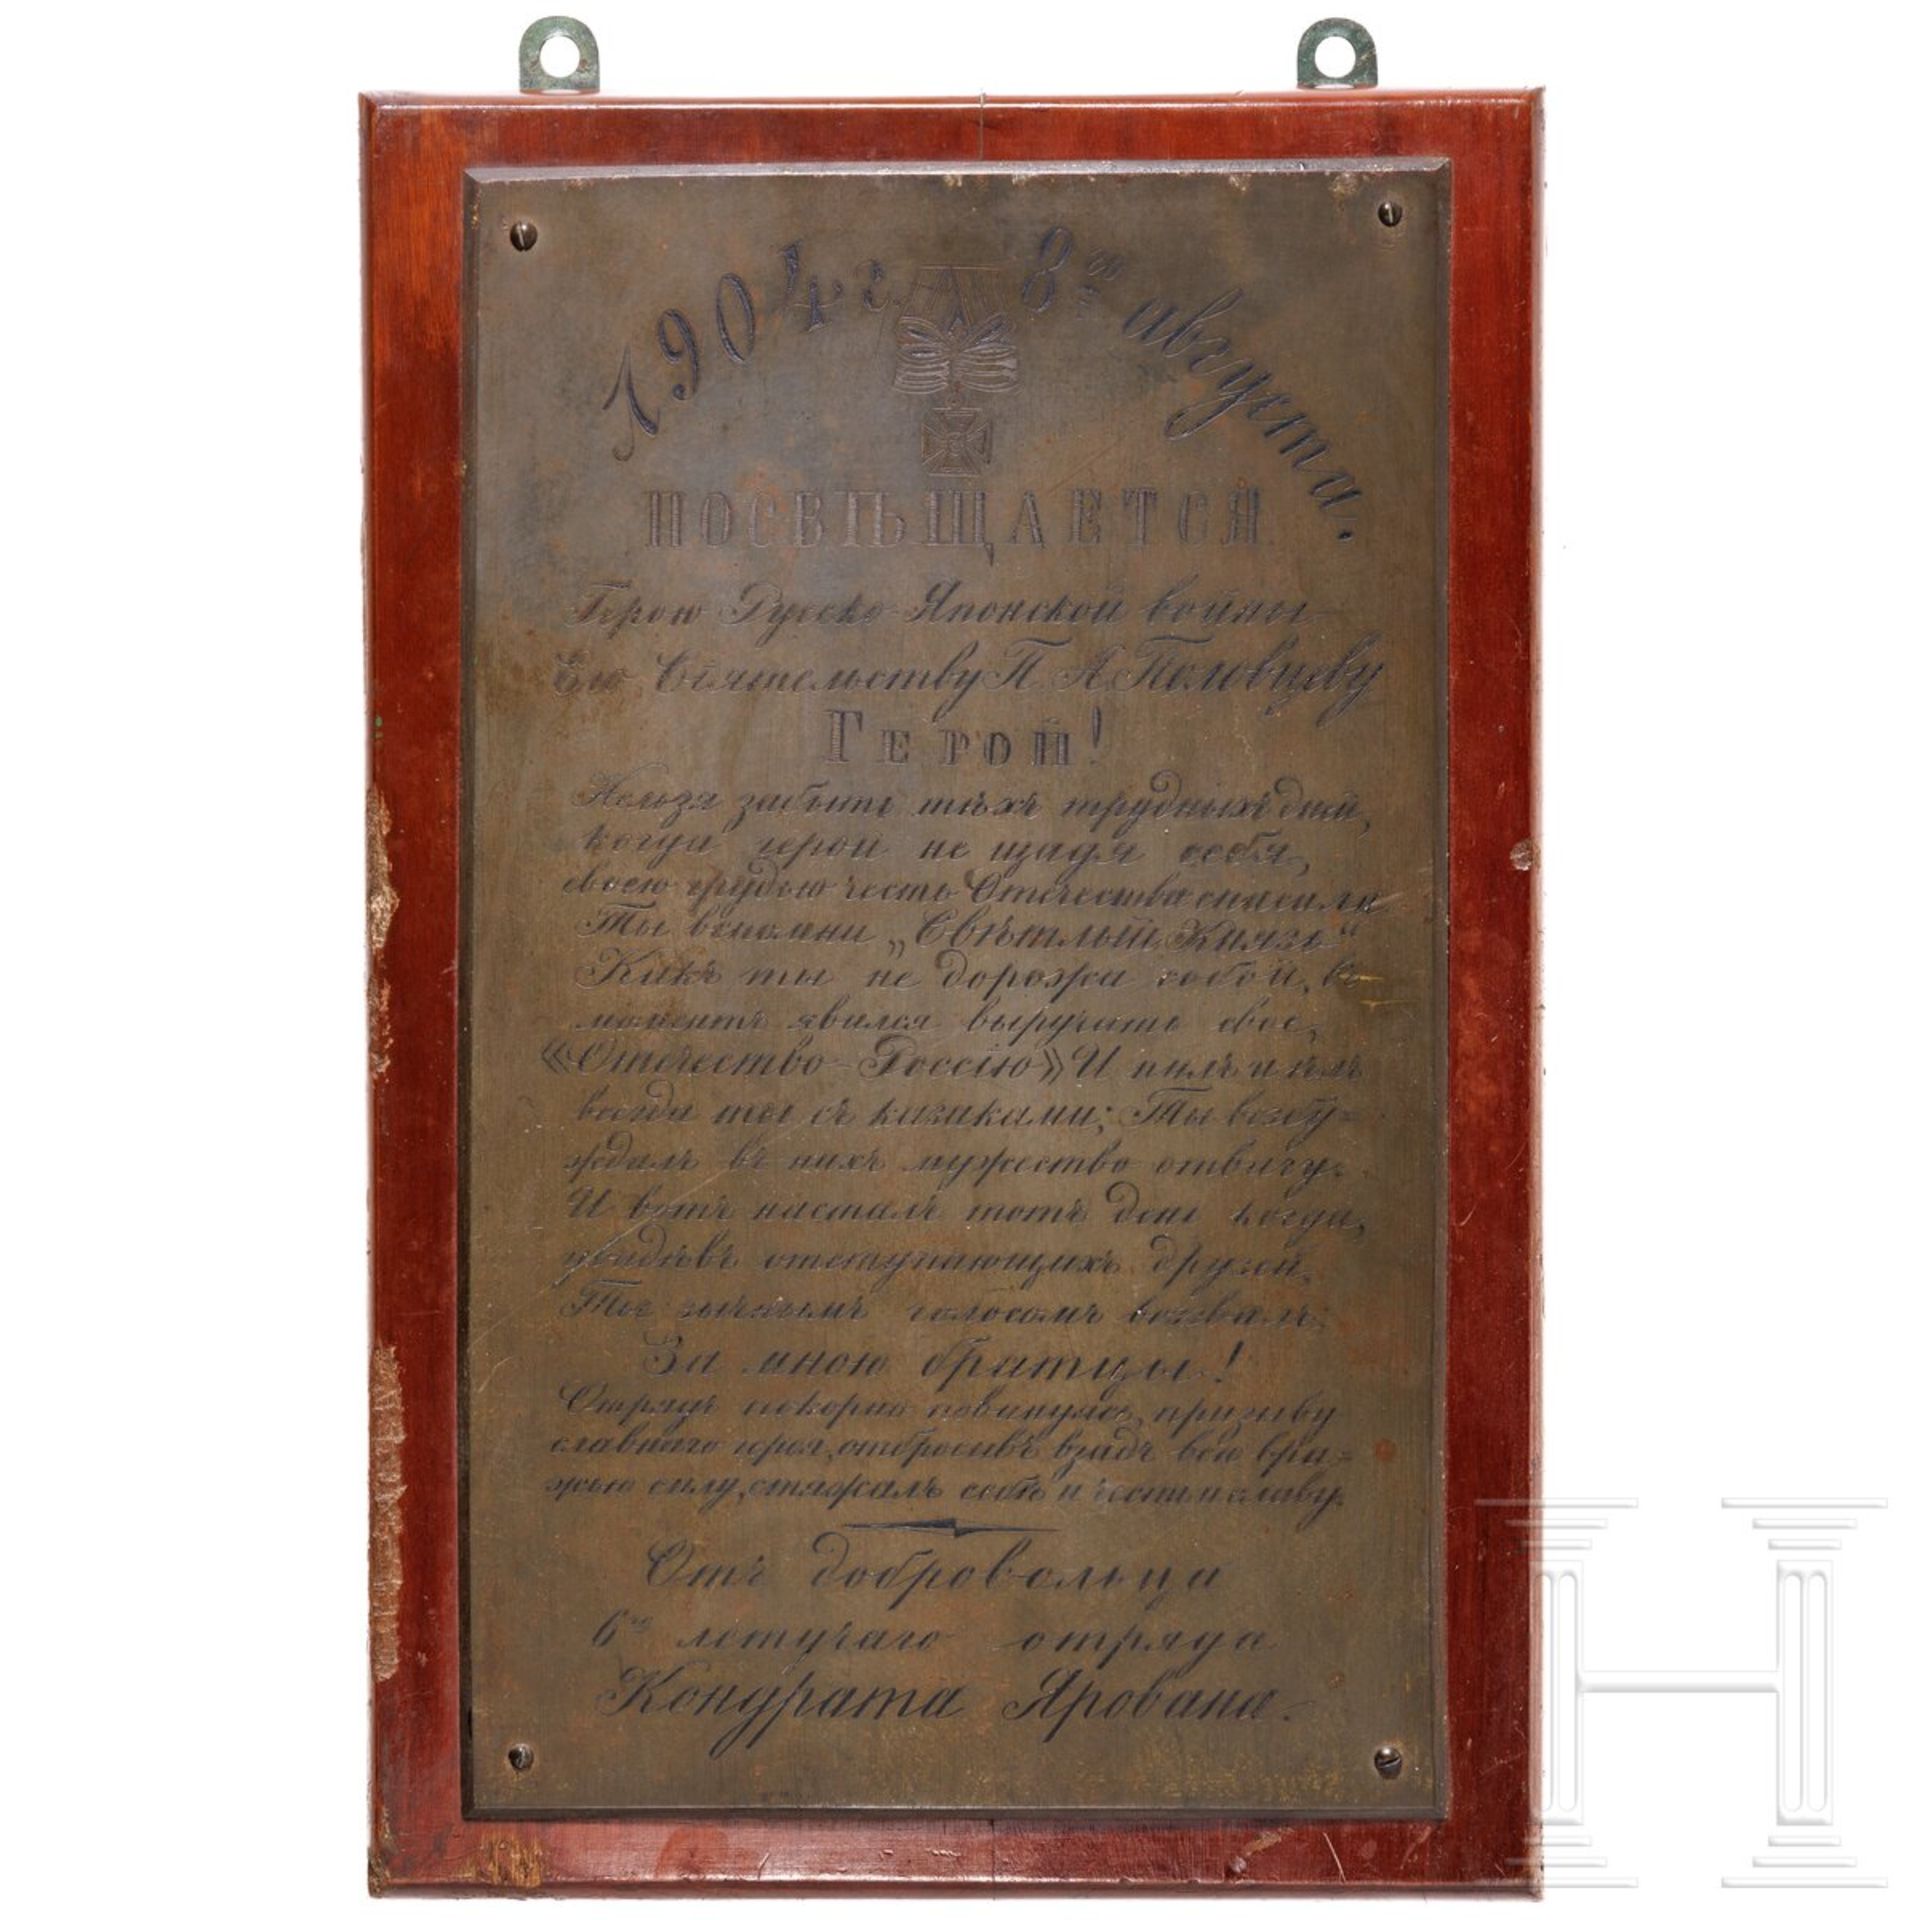 1904 г. 8го августа.
ПОСВѢЩАЕТСЯ
Герою Русско-Японской войны
Его Сіятельству П. А. Половцеву
ГЕРОЙ!
Нельзя забыть тѣхъ трудныхъ дней,
когда герои не щадя себя,
своею грудью честь Отечества спасали
Ты вспомни „Свѣтлый Князь“
Какъ ты не дорожа собой, въ
моментъ явился выручать свое,
«Отечество-Россію» И пилъ и ѣлъ
всегда ты съ казаками; Ты возбу-
ждалъ въ нихъ мужество отвагу.
И вотъ насталъ тотъ день когда,
увидѣвъ отступающихъ друзей,
Ты зычнымъ голосомъ воззвалъ:
За мною братцы!
Отрядъ покорно повинуясь призыву
славнаго героя, отбросивъ взадъ всю вра-
жью силу, стяжалъ себѣ и честь и славу.
Отъ добровольца
6го летучаго отряда
Кондрата Ярована.